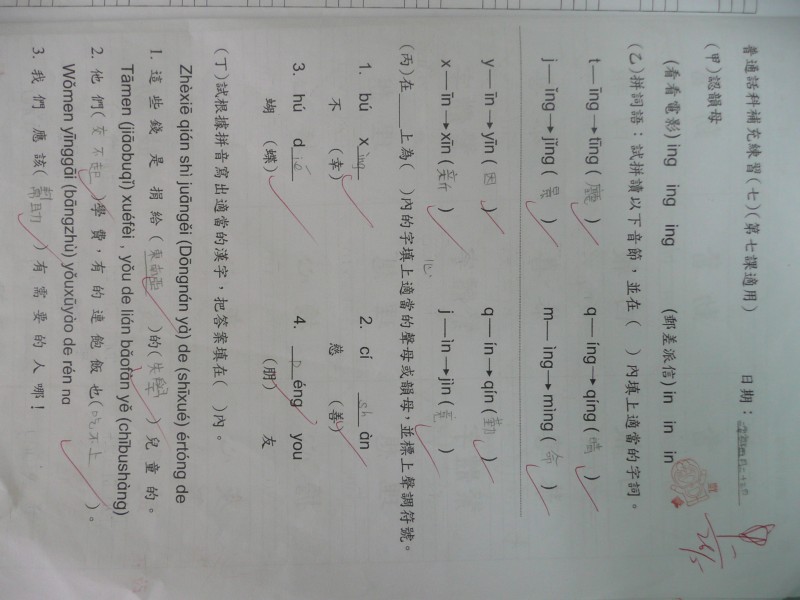 普通話科補充練習(七)(第七課適用)　日期：
(甲)認韻母
(看看電影) ing ing ing　(郵差派信) in in in
(乙)拼詞語：試拼讀以下音節，並在(　)內填上適當的字詞。
t—īng→tīng(廳)　q—íng→qíng(晴)
j—īng→jīng(晶)　m—ìng→mìng(命)
y—īn→yīn(因)　q—ín→qín(勤)
x—īn→xīn(新)　j—ìn→jìn(
(丙)在____上為(　)內的字填上適當的聲母或韻母，並標上聲調符號。
1. bú xìng　2. cí shàn
不(幸)　慈(善)
3. hú dié　4. péng you
蝴(蝶)　(朋)友
(丁)試根據拼音寫出適當的漢字，把答案填在(　)內。
Zhèxiē qián shì juāngěi (Dōngnán yà) de (shīxué) értóng de
1. 這些錢是捐給(東南亞)的(失學)兒童的。
Tāmen (jiāobuqǐ) xuéfèi , yǒu de lián bǎofàn yě (chībushàng)
2. 他們(交不起)學費，有的連飽飯也(吃不上)。
Wǒmen yīnggāi (bāngzhù) yǒuxūyào de rén na
3. 我們應該(幫助)有需要的人哪！